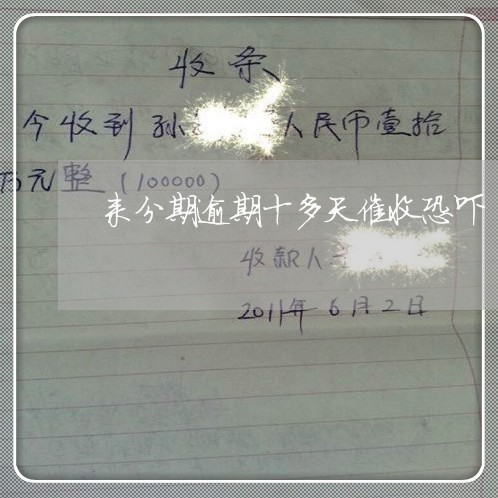 收条
今收到孙 人民币壹拾
万元整(100000)
来分期逾期十多天催收恐吓
收款人
2011年6月2日